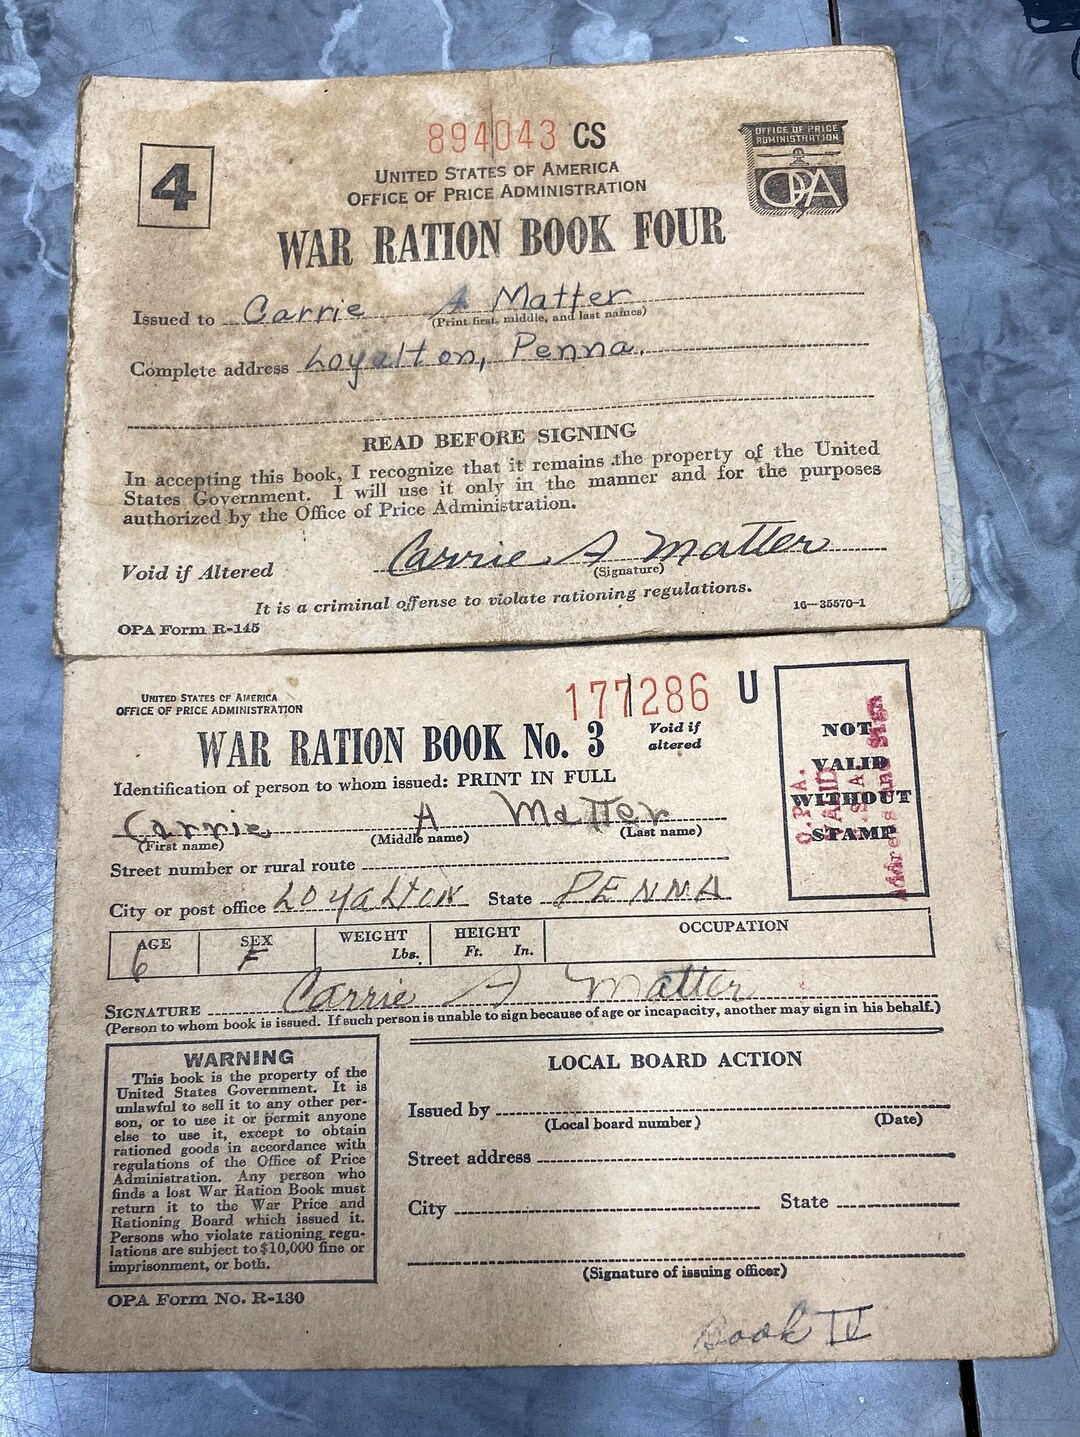 894043 CS
OFFICE OF PRICE
ADMINISTRATION
OPA
4
UNITED STATES OF AMERICA
OFFICE OF PRICE ADMINISTRATION
WAR RATION BOOK FOUR
Issued to Carrie A Matter
(Print first, middle, and last names)
Complete address Loyalton, Penna.
READ BEFORE SIGNING
In accepting this book, I recognize that it remains the property of the United
States Government. I will use it only in the manner and for the purposes
authorized by the Office of Price Administration.
Void if Altered Carrie A Matter
(Signature)
It is a criminal offense to violate rationing regulations.
16—35570-1
OPA Form R-145
UNITED STATES OF AMERICA
OFFICE OF PRICE ADMINISTRATION
177286 U
WAR RATION BOOK No. 3
Void if
altered
Identification of person to whom issued: PRINT IN FULL
Carrie A Matter
(First name) (Middle name) (Last name)
Street number or rural route
City or post office LOYALTON State PENNA
NOT
VALID
WITHOUT
STAMP
O.P.A.
VALID
Address and Sign
AGE SEX WEIGHT HEIGHT OCCUPATION
6 F Lbs. Ft. In.
SIGNATURE Carrie A Matter
(Person to whom book is issued. If such person is unable to sign because of age or incapacity, another may sign in his behalf.)
WARNING
This book is the property of the
United States Government. It is
unlawful to sell it to any other per-
son, or to use it or permit anyone
else to use it, except to obtain
rationed goods in accordance with
regulations of the Office of Price
Administration. Any person who
finds a lost War Ration Book must
return it to the War Price and
Rationing Board which issued it.
Persons who violate rationing regu-
lations are subject to $10,000 fine or
imprisonment, or both.
OPA Form No. R-130
LOCAL BOARD ACTION
Issued by
(Local board number) (Date)
Street address
City State
(Signature of issuing officer)
Book IV